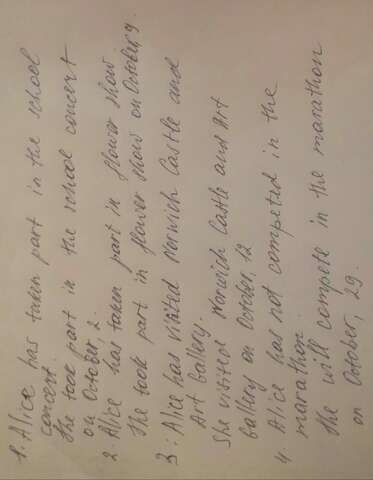 1. Alice has taken part in the school
concert.
She took part in the school concert
on October, 2.
2. Alice has taken part in flower show
She took part in flower show on October, 9.
3. Alice has visited Norwich Castle and
Art Gallery.
She visited Norwich Castle and Art
Gallery on October, 12
4. Alice has not competed in the
marathon.
She will compete in the marathon
on October, 29.